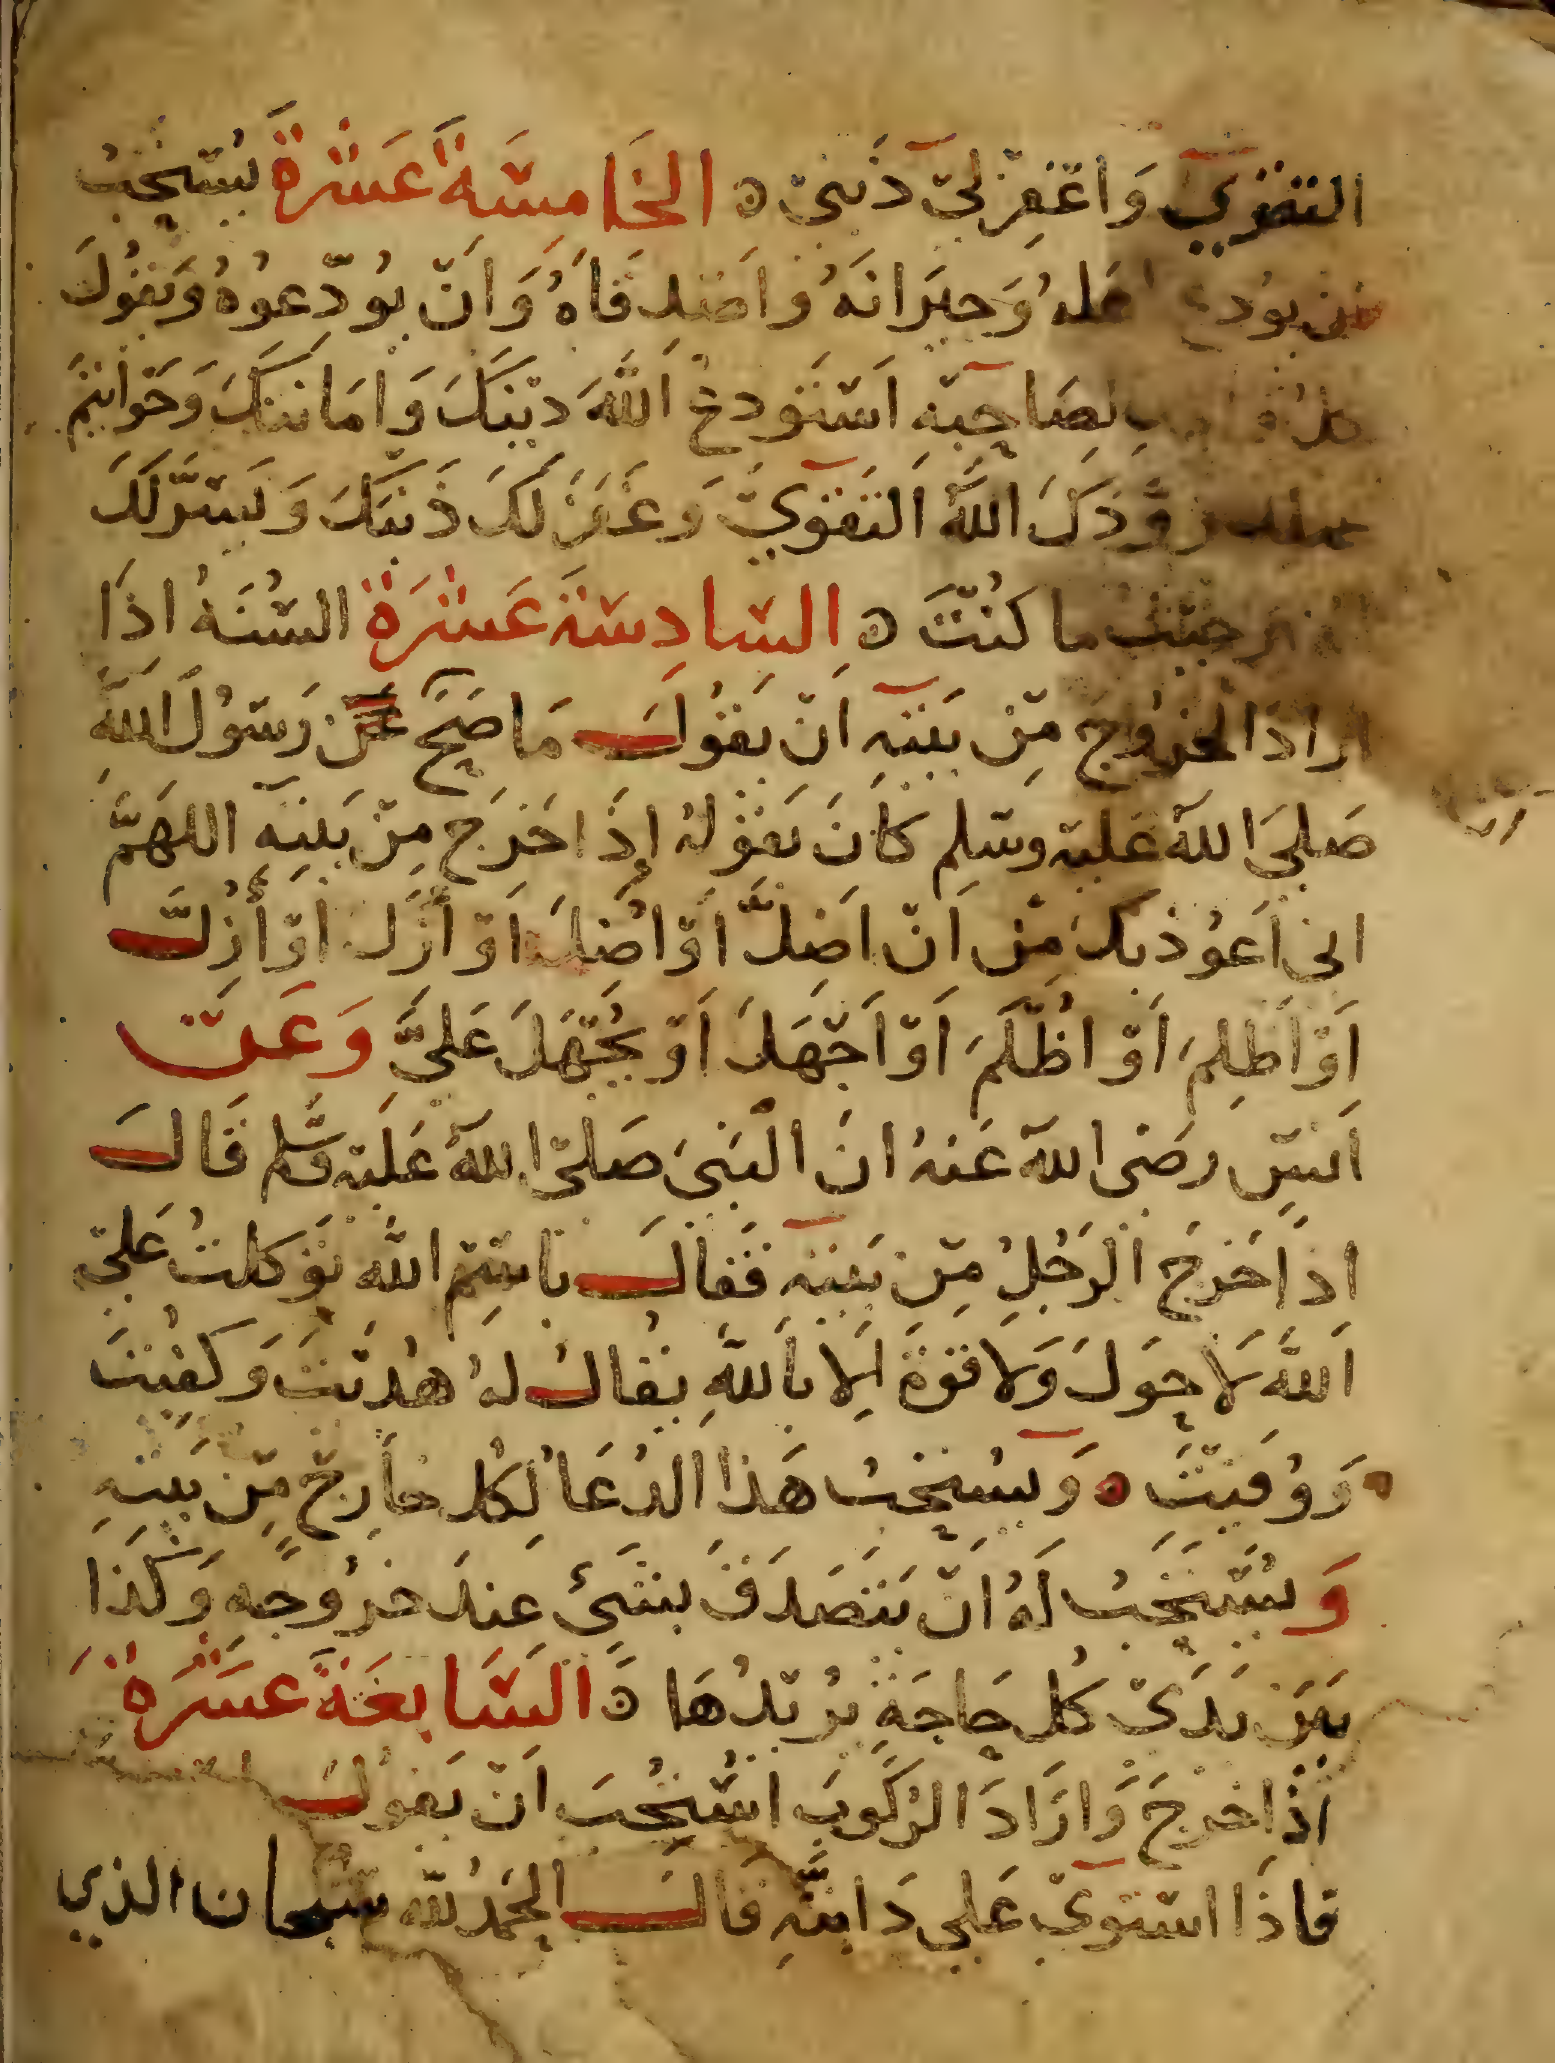 التقوي وَاغْفِرْ لِيْ ذَنْبِيْ ه الخَامِسَةَ عَشْرَةَ يُسْتَحَبُ
ان يودع اهله وَجيرَانَهُ وَاصْدِقَاهُ وَانْ يُوَدّعُوهُ وَيَقُولَ
كل واحد لِصَاحِبِهِ اَسْتَودِعُ اللَّهَ دِيْنَكَ وَاَمَانَتكَ وَخَوَاتِيْمَ
عملك زَوَّدَكَ اللَّهُ التَقْوَيْ وَغَفَرَ لَكَ ذَنْبَكَ وَيَسَّرَ لَكَ
الخير حَيْثُ ما كُنْتَ ه السَّادِسَةَ عَشْرَةَ السُنَهُ اذَا
ارادَ الخرُوجَ مِنْ بَيْتِهِ اَنْ يَقُولَ مَا صَحَّ عَنْ رَسُولِ اللَّهِ
صَلىَ اللهُ عَليْهِ وسَلم كَانَ يَقُولُ إِذَا خَرَج مِنْ بَيْتِهِ اللهُمَّ
اني اَعُوْذ بكَ مِنْ اَنْ اَضِلَّ اَوْ اُضَلَ اَوْ اَزَلَ اَوْ أُزِلَّ
اَوْ اَظلِمَ اَوْ اُظْلَمَ اَوْ اَجْهَلَ اَوْ يُجْهَلَ عَليَّ وَعَنْ
اَنَسٍ رضَى اللهُ عَنهُ انَ النَبيَ صَلىْ اللهُ عَليْهِ وسَّلم قَالَ
اذَا خَرَجَ الرَجُلُ مِنْ بَيْتِهِ فَقَالَ بَاسْمِ اللَّه تَوَكلتُ عَلىَ
اللَّهِ لاَ حَوَلَ وَلا قوةَ اِلا بَاللَّهِ يُقَالُ لهُ هُدِيْتَ وَكفِيْتَ
وَوُقيْتَ ه وَيسْتَحبُ هَذَا الدُعَا لِكُل خَارِجٍ مِنْ بَيتهِ
وَيُسْتَحَبُ لَهُ انْ يَتَصَدَقَ بشَىْءٍ عِندَ خرُوجِهِ وَكَذَا
بَيَن يَدَىْ كُل حَاجَةٍ يُريْدُهَا ه السَّابِعَةَ عَشَرَةَ
اذَا خرَجَ وَارَادَ الرُكوبَ اسْتُحِبَ اَنْ يَقُولَ
فاذَا اسْتَوَيْ عَلي دَابَّتِهِ قَالَ الحَمْدُ للهِ سبحان الذي